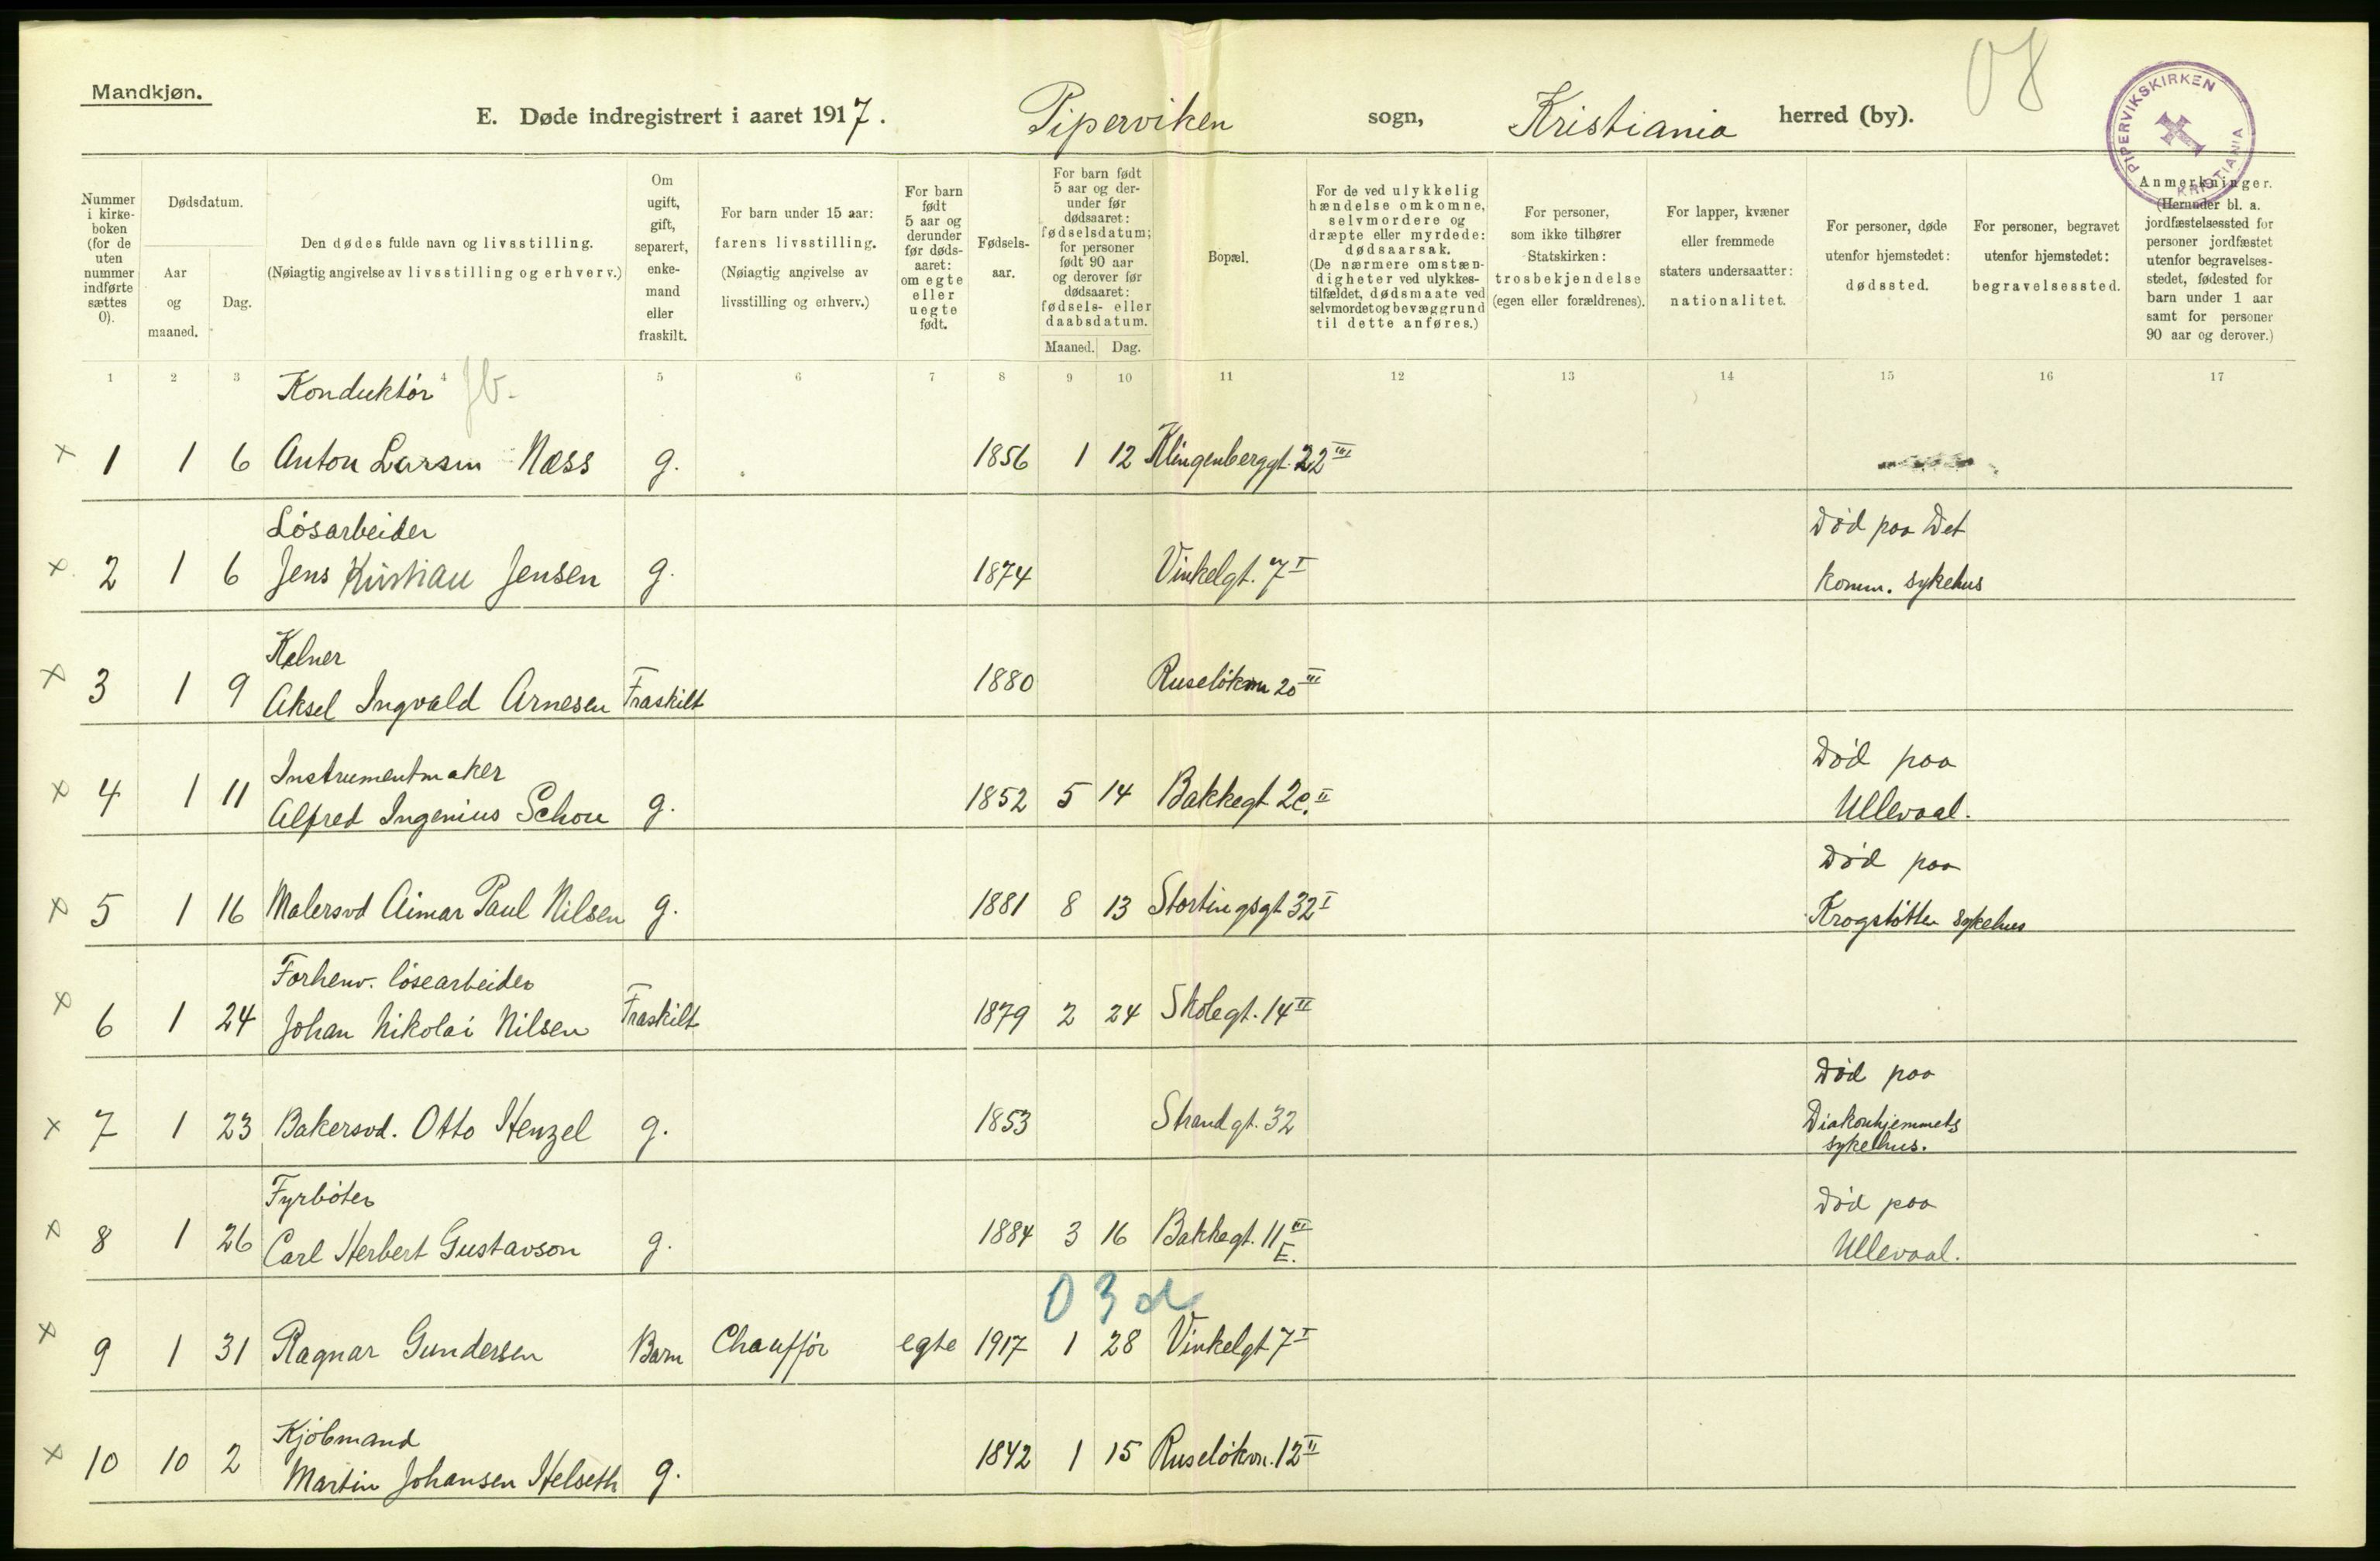 Mandkjøn.
E. Døde indregistrert i aaret 1917. Piperviken sogn, Kristiania herred (by).
08
PIPERVIKSKIRKEN KRISTIANIA
Nummer i kirke-boken (for de uten nummer indførte sættes 0).
Dødsdatum.
Aar og maaned.
Dag.
Den dødes fulde navn og livsstilling.
(Nøiagtig angivelse av livsstilling og erhverv.)
Om ugift, gift, separert, enke-mand eller fraskilt.
For barn under 15 aar: farens livsstilling.
(Nøiagtig angivelse av livsstilling og erhverv.)
For barn født 5 aar og derunder før døds-aaret: om egte eller uegte født.
Fødsels-aar.
For barn født 5 aar og der-under før dødsaaret: fødselsdatum; for personer født 90 aar og derover før dødsaaret: fødsels- eller daabsdatum.
Maaned. Dag.
Bopæl.
For de ved ulykkelig hændelse omkomne, selvmordere og dræpte eller myrdede: dødsaarsak.
(De nærmere omstæn-digheter ved ulykkes-tilfældet, dødsmaate ved selvmordet og bevæggrund til dette anføres.)
For personer, som ikke tilhører Statskirken: trosbekjendelse (egen eller forældrenes).
For lapper, kvæner eller fremmede staters undersaatter: nationalitet.
For personer, døde utenfor hjemstedet: dødssted.
For personer, begravet utenfor hjemstedet: begravelsessted.
Anmerkninger.
(Herunder bl. a. jordfæstelsessted for personer jordfæstet utenfor begravelses-stedet, fødested for barn under 1 aar samt for personer 90 aar og derover.)
1 2 3 4 5 6 7 8 9 10 11 12 13 14 15 16 17
Konduktør
× 1 1 6 Anton Larsen Næss g. 1856 1 12 Klingenberggt. 22 III
Løsarbeider
Død paa Det
× 2 1 6 Jens Kristian Jensen g. 1874 Vinkelgt. 7 I komm. sykehus
Kelner
× 3 1 9 Aksel Ingvald Arnesen Fraskilt 1880 Ruseløkvn 20 III
Instrumentmaker
Død paa
× 4 1 11 Alfred Ingenius Schou g. 1852 5 14 Bakkegt. 2c. II Ullevaal.
Død paa
× 5 1 16 Malersvd Aimar Paul Nilsen g. 1881 8 13 Stortingsgt 32 I Krogstøtten sykehus
Forhenv. løsearbeider
× 6 1 24 Johan Nikolai Nilsen Fraskilt 1879 2 24 Skolegt. 14 II
Død paa
× 7 1 23 Bakersvd. Otto Henzel g. 1853 Strandgt. 32 Diakonhjemmets
sykehus.
Fyrbøter
Død paa
× 8 1 26 Carl Herbert Gustavson g. 1884 3 16 Bakkegt. 11 III E. Ullevaal.
03d
× 9 1 31 Ragnar Gundersen Barn Chauffør egte 1917 1 28 Vinkelgt 7 I
Kjøbmand
× 10 10 2 Martin Johansen Helseth g. 1842 1 15 Ruseløkvn. 12 II